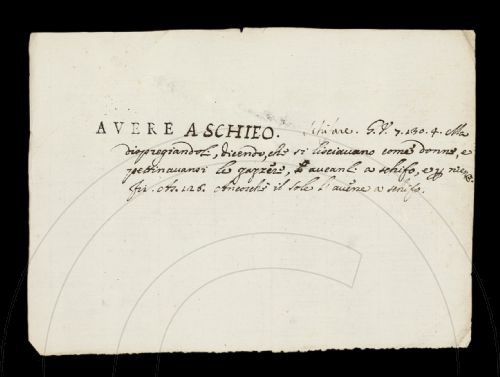 AVERE A SCHIFO. Schifare. G.V. 7. 130. 4. Ma
dispregiandoli, dicendo, che si lisciavano come donne, e
pettinavansi le zazzere, li aveano a schifo, e per niente.
fir. As. 128. Ancorchè il Sole l'avene a schifo.